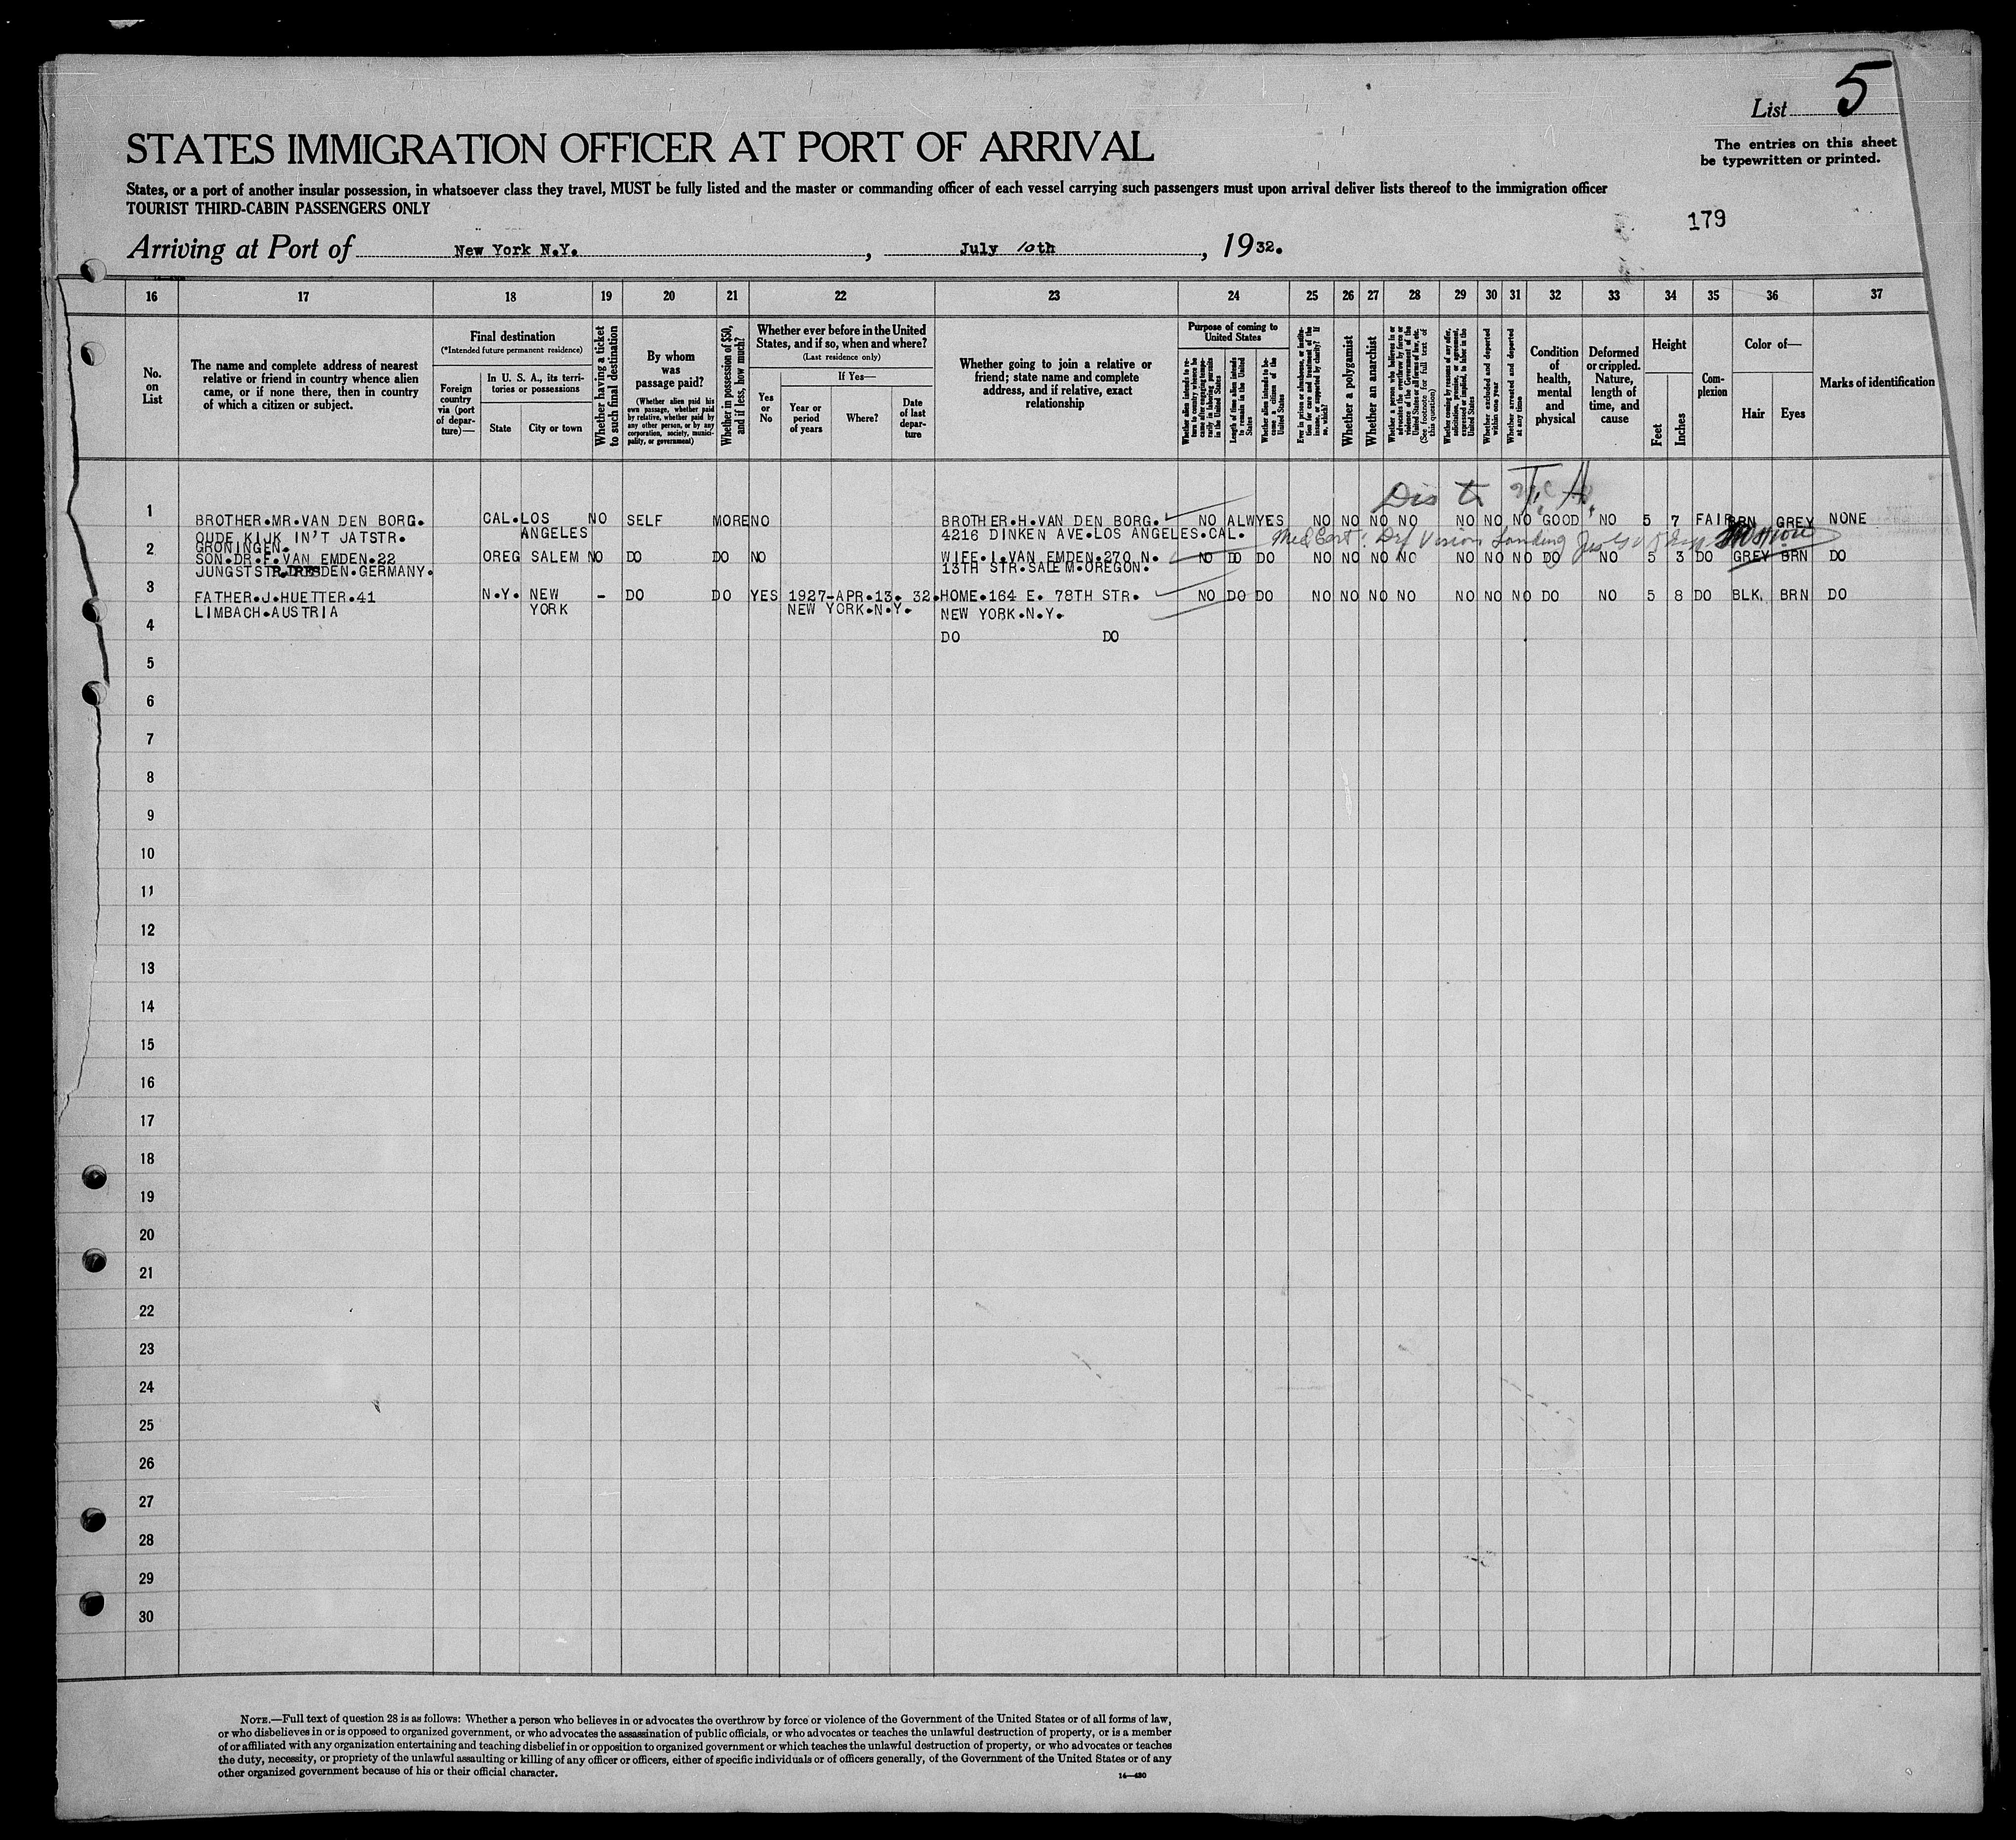 List 5
STATES IMMIGRATION OFFICER AT PORT OF ARRIVAL
The entries on this sheet
be typewritten or printed.
States, or a port of another insular possession, in whatsoever class they travel, MUST be fully listed and the master or commanding officer of each vessel carrying such passengers must upon arrival deliver lists thereof to the immigration officer
TOURIST THIRD-CABIN PASSENGERS ONLY
179
Arriving at Port of New York N.Y. , July 10th , 1932.
16 17 18 19 20 21 22 23 24 25 26 27 28 29 30 31 32 33 34 35 36 37
No. on List
The name and complete address of nearest
relative or friend in country whence alien
came, or if none there, then in country
of which a citizen or subject.
Final destination
(*Intended future permanent residence)
Foreign country via (port of departure)—
In U. S. A., its territories or possessions
State
City or town
Whether having a ticket to such final destination
By whom was passage paid?
(Whether alien paid his own passage, whether paid by relative, whether paid by any other person, or by any corporation, society, municipality, or government)
Whether in possession of $50, and if less, how much?
Whether ever before in the United
States, and if so, when and where?
(Last residence only)
Yes or No
If Yes—
Year or period of years
Where?
Date of last departure
Whether going to join a relative or
friend; state name and complete
address, and if relative, exact
relationship
Purpose of coming to
United States
Length of time alien intends to remain in the United States
Whether alien intends to become a citizen of the United States
Whether a polygamist
Whether an anarchist
Whether excluded and deported within one year
Whether arrested and deported at any time
Condition of health, mental and physical
Deformed or crippled. Nature, length of time, and cause
Height
Feet
Inches
Complexion
Color of—
Hair
Eyes
Marks of identification
Dis to T. A.
1 BROTHER.MR.VAN DEN BORG. CAL. LOS NO SELF MORE NO BROTHER.H.VAN DEN BORG. NO ALW YES NO NO NO NO NO NO NO GOOD NO 5 7 FAIR BRN GREY NONE
OUDE KIJK IN'T JATSTR. ANGELES 4216 DINKEN AVE.LOS ANGELES.CAL.
GRONINGEN.
Med Cert: Def Vision Landing
2 SON.DR.F.VAN EMDEN.22 OREG SALEM NO DO DO NO WIFE.I.VAN EMDEN.270 N. NO DO DO NO NO NO NO NO NO NO DO NO 5 3 DO GREY BRN DO
JUNGSTSTR.DRESDEN.GERMANY. 13TH STR.SALEM.OREGON.
3 FATHER.J.HUETTER.41 N.Y. NEW - DO DO YES 1927-APR.13. 32. HOME.164 E. 78TH STR. NO DO DO NO NO NO NO NO NO NO DO NO 5 8 DO BLK. BRN DO
LIMBACH.AUSTRIA YORK NEW YORK.N.Y. NEW YORK.N.Y.
4 DO DO
5
6
7
8
9
10
11
12
13
14
15
16
17
18
19
20
21
22
23
24
25
26
27
28
29
30
NOTE.—Full text of question 28 is as follows: Whether a person who believes in or advocates the overthrow by force or violence of the Government of the United States or of all forms of law,
or who disbelieves in or is opposed to organized government, or who advocates the assassination of public officials, or who advocates or teaches the unlawful destruction of property, or is a member
of or affiliated with any organization entertaining and teaching disbelief in or opposition to organized government or which teaches the unlawful destruction of property, or who advocates or teaches
the duty, necessity, or propriety of the unlawful assaulting or killing of any officer or officers, either of specific individuals or of officers generally, of the Government of the United States or of any
other organized government because of his or their official character.
14—430